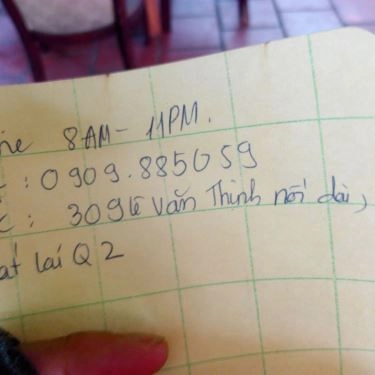 ne 8AM - 11PM.
: 0909.885059
: 309 Lê Văn Thịnh nối dài,
át lái Q2